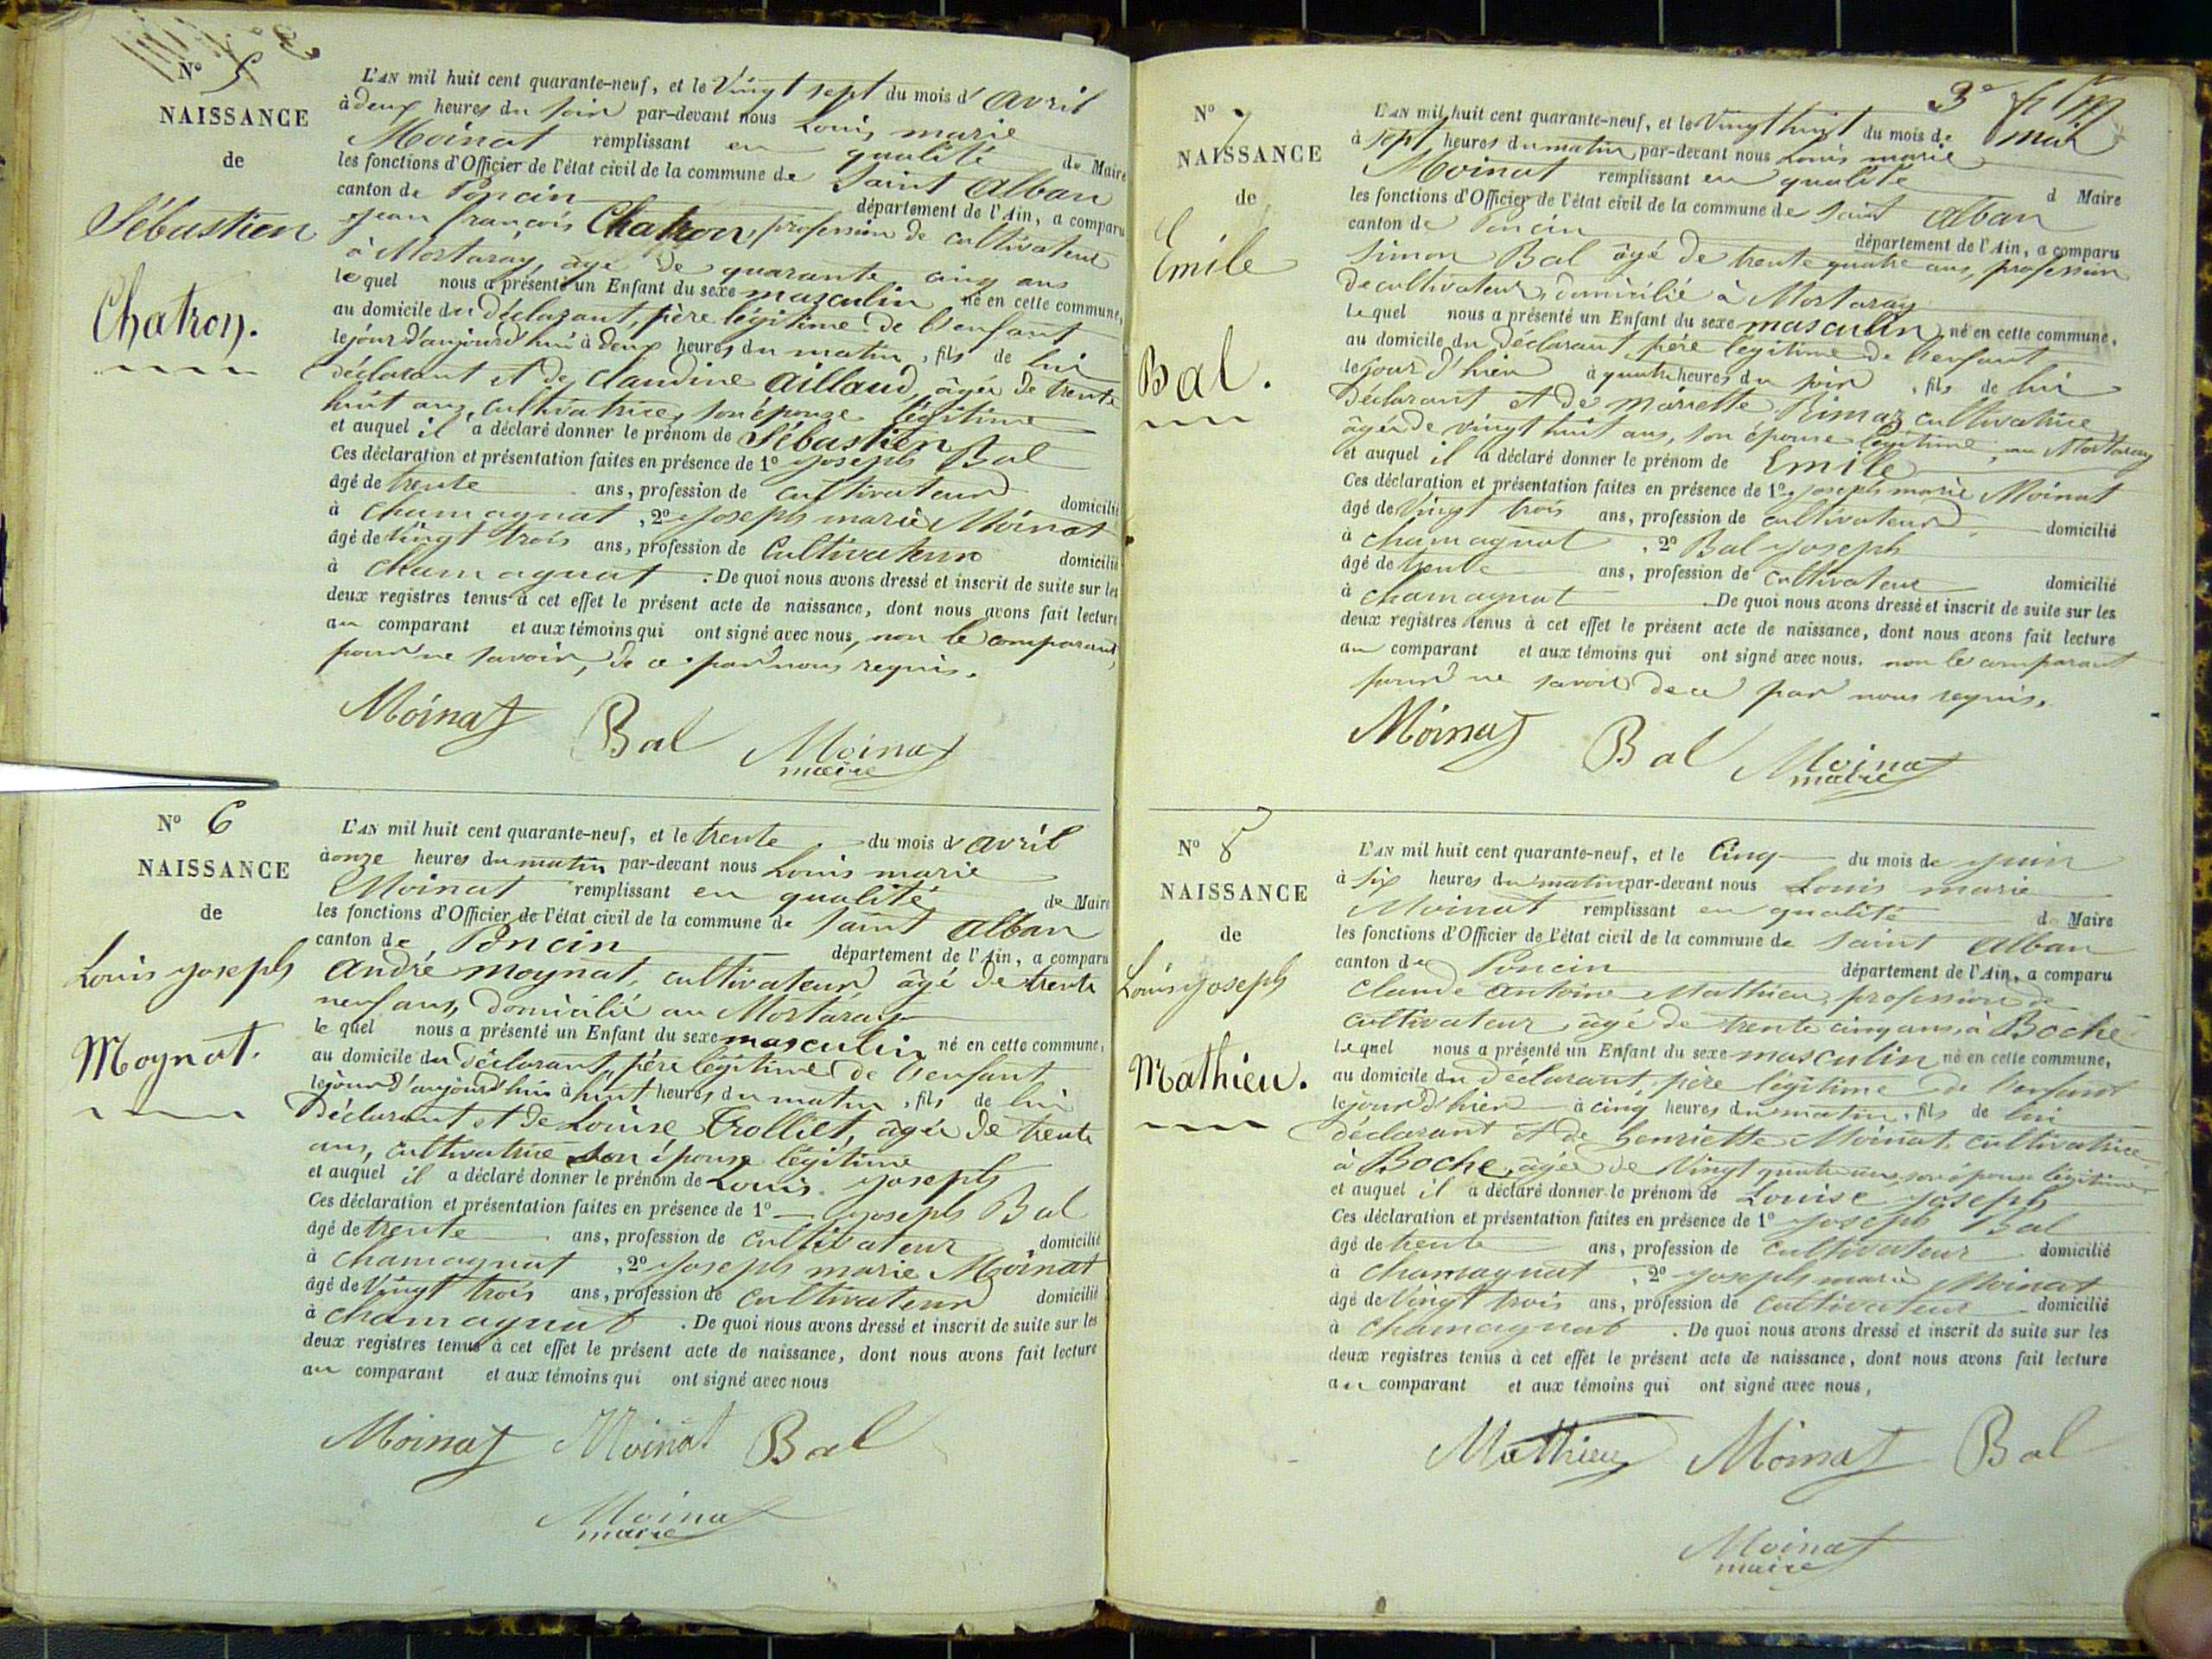 Nº 5
NAISSANCE
de
Sébastien
Chatron.
L'AN mil huit cent quarante-neuf, et le Vingt sept du mois d'avril
à deux heures du soir par-devant nous Louis marie
Moinat remplissant en qualité de Maire
les fonctions d'Officier de l'état civil de la commune de Saint Alban
canton de Poncin département de l'Ain, a comparu
jean françois Chatron, profession de cultivateur
à Mortaray, âgé de quarante cinq ans
lequel nous a présenté un Enfant du sexe masculin né en cette commune,
au domicile du déclarant, père légitime de l'enfant
le jour d'aujourd'hui à deux heures du matin, fils de lui
déclarant et de Claudine Aillaud, âgée de trente
huit ans, cultivatrice, son épouse légitime
et auquel il a déclaré donner le prénom de Sébastien
Ces déclaration et présentation faites en présence de 1º joseph Bal
âgé de trente ans, profession de cultivateur domicilié
à Chamagnat, 2º joseph marie Moinat
âgé de Vingt trois ans, profession de Cultivateur domicilié
à Chamagnat. De quoi nous avons dressé et inscrit de suite sur les
deux registres tenus à cet effet le présent acte de naissance, dont nous avons fait lecture
au comparant et aux témoins qui ont signé avec nous, non le comparant
pour ne savoir, de ce par nous requis.
Moinat Bal Moinat
maire
Nº 6
NAISSANCE
de
Louis joseph
Moynat.
L'AN mil huit cent quarante-neuf, et le trente du mois d'avril
à onze heures du matin par-devant nous Louis marie
Moinat remplissant en qualité de Maire
les fonctions d'Officier de l'état civil de la commune de Saint Alban
canton de Poncin département de l'Ain, a comparu
André moynat, cultivateur, âgé de trente
neuf ans, domicilié au Mortaray
le quel nous a présenté un Enfant du sexe masculin né en cette commune,
au domicile du déclarant, père légitime de l'enfant
le jour d'aujourd'hui à huit heures du matin, fils de lui
Déclarant et de Louise Trolliet, âgée de trente
ans, cultivatrice son épouse légitime
et auquel il a déclaré donner le prénom de Louis joseph
Ces déclaration et présentation faites en présence de 1º joseph Bal
âgé de trente ans, profession de cultivateur domicilié
à Chamagnat, 2º joseph marie Moinat
âgé de Vingt trois ans, profession de cultivateur domicilié
à chamagnat. De quoi nous avons dressé et inscrit de suite sur les
deux registres tenus à cet effet le présent acte de naissance, dont nous avons fait lecture
au comparant et aux témoins qui ont signé avec nous
Moinat Moinat Bal
Moinat
maire
3e
Nº 7
NAISSANCE
de
Emile
Bal.
L'AN mil huit cent quarante-neuf, et le Vingt huit du mois de mai
à sept heures du matin par-devant nous Louis marie
Moinat remplissant en qualité d Maire
les fonctions d'Officier de l'état civil de la commune de Saint Alban
canton de Poncin département de l'Ain, a comparu
Simon Bal âgé de trente quatre ans, profession
de cultivateur, domicilié à Mortaray
Lequel nous a présenté un Enfant du sexe masculin, né en cette commune,
au domicile du déclarant, père légitime de l'enfant
le jour d'hier à quatre heures du soir, fils de lui
Déclarant et de Mariette Rimaz cultivatrice
âgée de vingt huit ans, son épouse légitime, au Mortaray
et auquel il a déclaré donner le prénom de Emile
Ces déclaration et présentation faites en présence de 1º joseph marie Moinat
âgé de Vingt trois ans, profession de cultivateur domicilié
à chamagnat, 2º Bal joseph
âgé de trente ans, profession de cultivateur domicilié
à chamagnat. De quoi nous avons dressé et inscrit de suite sur les
deux registres tenus à cet effet le présent acte de naissance, dont nous avons fait lecture
au comparant et aux témoins qui ont signé avec nous. non le comparant
pour ne savoir de ce par nous requis.
Moinat Bal Moinat
maire
Nº 8
NAISSANCE
de
Louis joseph
Mathieu.
L'AN mil huit cent quarante-neuf, et le Cinq du mois de juin
à six heures du matin par-devant nous Louis marie
Moinat remplissant en qualité de Maire
les fonctions d'Officier de l'état civil de la commune de Saint Alban
canton de Poncin département de l'Ain, a comparu
Claude Antoine Mathieu, profession de
cultivateur, âgé de trente cinq ans, à Boche
Lequel nous a présenté un Enfant du sexe masculin né en cette commune,
au domicile du déclarant, père légitime de l'enfant
le jour d'hier à cinq heures du matin, fils de lui
déclarant et de henriette Moinat, cultivatrice
à Boche, âgée de Vingt quatre ans, son épouse légitime
et auquel il a déclaré donner le prénom de Louise joseph
Ces déclaration et présentation faites en présence de 1º joseph Bal
âgé de trente ans, profession de cultivateur domicilié
à Chamagnat, 2º joseph marie Moinat
âgé de Vingt trois ans, profession de cultivateur domicilié
à Chamagnat. De quoi nous avons dressé et inscrit de suite sur les
deux registres tenus à cet effet le présent acte de naissance, dont nous avons fait lecture
au comparant et aux témoins qui ont signé avec nous,
Mathieu Moinat Bal
Moinat
maire